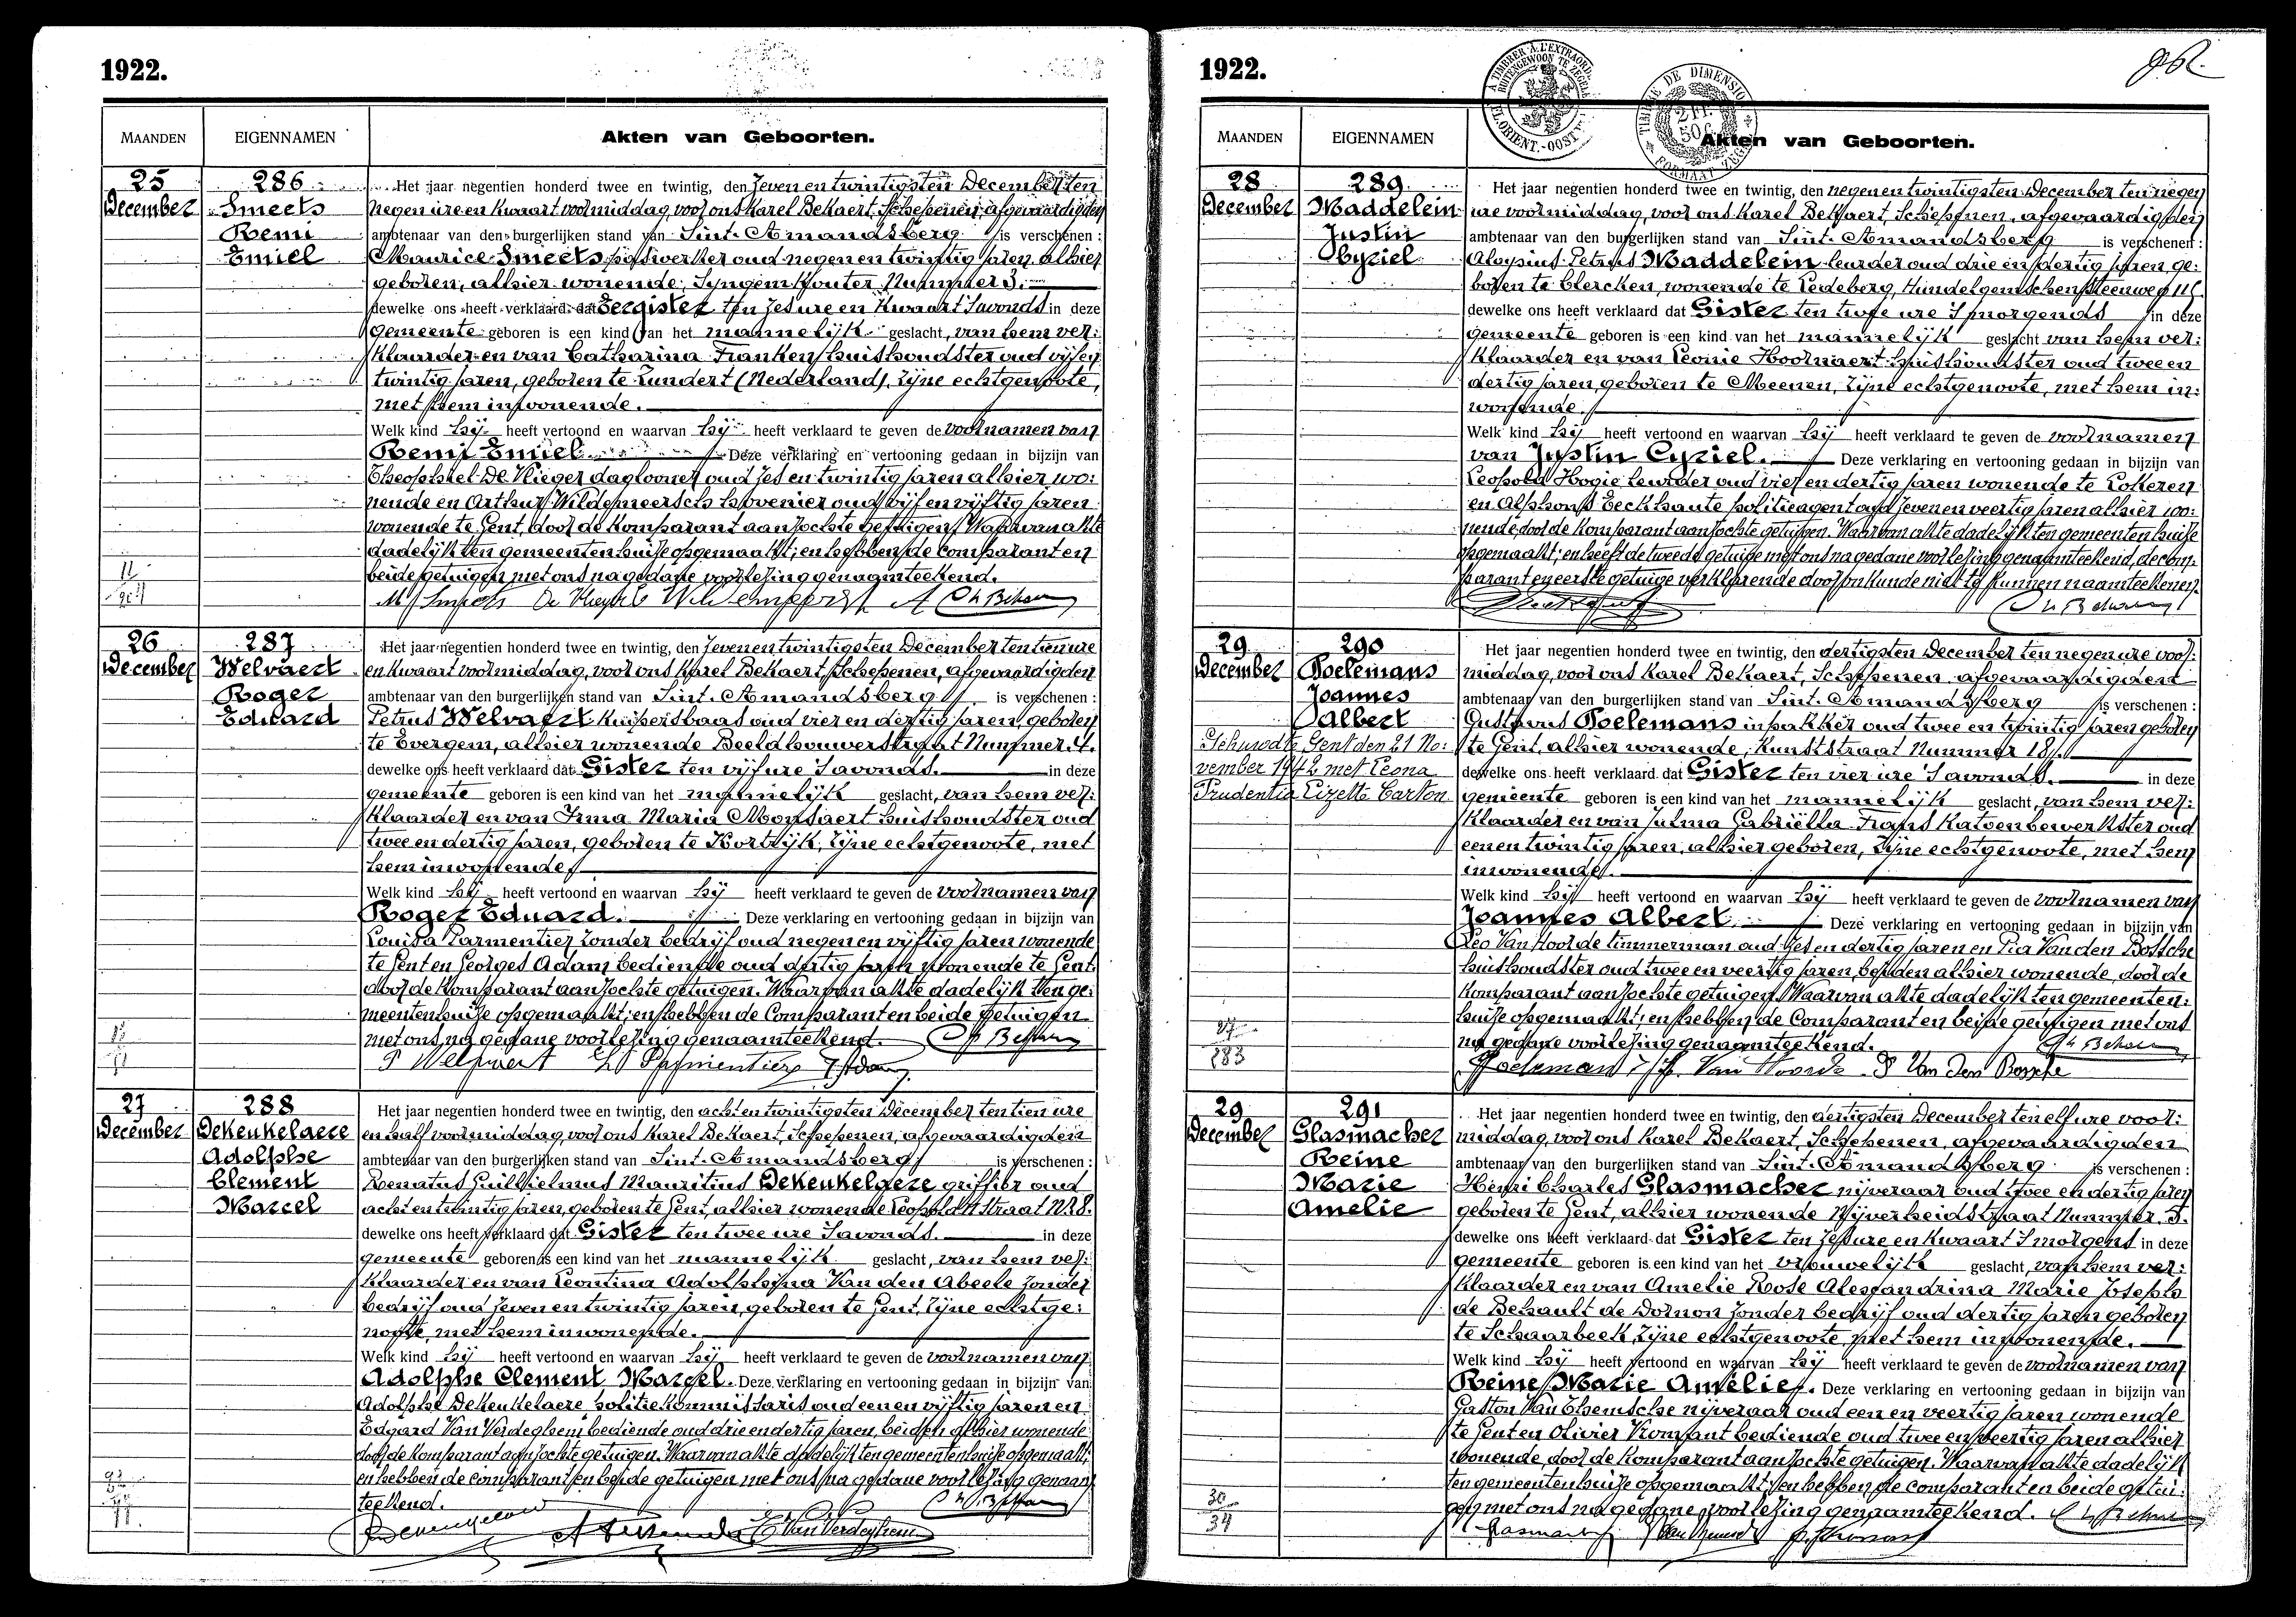 1922.
MAANDEN EIGENNAMEN Akten van Geboorten.
25 December
286
Smeets
Remi
Emiel
Het jaar negentien honderd twee en twintig, den zeven en twintigsten December ten
negen ure en kwaart voormiddag, voor ons Karel Bekaert, Schepenen, afgevaardigden
ambtenaar van den burgerlijken stand van Sint-Amandsberg is verschenen :
Maurice Smeets oud negen en twintig jaren, alhier
geboren, alhier wonende, Nummer 3.
dewelke ons heeft verklaard dat Eergister ten zes ure en kwaart 'savonds in deze
gemeente geboren is een kind van het mannelijk geslacht, van hem ver:
klaarder en van Catharina Franken huishoudster oud vijf en
twintig jaren, geboren te Zundert (Nederland), zijne echtgenoote,
met hem inwonende.
Welk kind hij heeft vertoond en waarvan hij heeft verklaard te geven de voornamen van
Remi Emiel. Deze verklaring en vertooning gedaan in bijzijn van
Theophiel De Vlieger daglooner oud zes en twintig jaren alhier wo:
nende en Arthur Wildemeersch hovenier oud vijf en vijftig jaren
wonende te Gent, door de komparant aanzochte getuigen. Waarvan akte
dadelijk ten gemeentenhuize opgemaakt; en hebben de comparant en
beide getuigen met ons na gedane voorlezing genaamteekend.
26 December
287
Welvaert
Roger
Eduard
Het jaar negentien honderd twee en twintig, den zeven en twintigsten December ten tien ure
en kwaart voormiddag, voor ons Karel Bekaert, Schepenen, afgevaardigden
ambtenaar van den burgerlijken stand van Sint-Amandsberg is verschenen :
Petrus Welvaert kuipersbaas oud vier en dertig jaren, geboren
te Evergem, alhier wonende Beeldhouwerstraat Nummer 4.
dewelke ons heeft verklaard dat Gister ten vijf ure 'savonds. in deze
gemeente geboren is een kind van het mannelijk geslacht, van hem ver:
klaarder en van Irma Maria Monsaert huishoudster oud
twee en dertig jaren, geboren te Kortrijk, zijne echtgenoote, met
hem inwonende.
Welk kind hij heeft vertoond en waarvan hij heeft verklaard te geven de voornamen van
Roger Eduard. Deze verklaring en vertooning gedaan in bijzijn van
Louisa Parmentier zonder bedrijf oud negen en vijftig jaren wonende
te Gent en Georges Adam bediende oud dertig jaren wonende te Gent.
door de komparant aanzochte getuigen. Waarvan akte dadelijk ten ge:
meentenhuize opgemaakt; en hebben de Comparant en beide getuigen
met ons na gedane voorlezing genaamteekend.
P Welvaert
27 December
288
DeKeukelaere
Adolphe
Clement
Marcel
Het jaar negentien honderd twee en twintig, den acht en twintigsten December ten tien ure
en half voormiddag, voor ons Karel Bekaert, Schepenen, afgevaardigden
ambtenaar van den burgerlijken stand van Sint-Amandsberg is verschenen :
Renatus Guillielmus Mauritius DeKeukelaere griffier oud
acht en twintig jaren, geboren te Gent, alhier wonende Leopold II straat Nr 8.
dewelke ons heeft verklaard dat Gister ten twee ure 'savonds. in deze
gemeente geboren is een kind van het mannelijk geslacht, van hem ver:
klaarder en van Leontina Adolphina Van den Abeele zonder
bedrijf oud zeven en twintig jaren, geboren te Gent, zijne echtge:
noote, met hem inwonende.
Welk kind hij heeft vertoond en waarvan hij heeft verklaard te geven de voornamen van
Adolphe Clement Marcel. Deze verklaring en vertooning gedaan in bijzijn van
Adolphe DeKeukelaere politiekommissaris oud een en vijftig jaren en
Edgard Van Verdeghem bediende oud drie en dertig jaren, beiden alhier wonende
door de komparant aanzochte getuigen. Waarvan akte dadelijk ten gemeentenhuize opgemaakt;
en hebben de comparant en beide getuigen met ons na gedane voorlezing genaam
teekend.
1922.
MAANDEN EIGENNAMEN Akten van Geboorten.
28 December
289
Maddelein
Justin
Cyriel
Het jaar negentien honderd twee en twintig, den negen en twintigsten December ten negen
ure voormiddag, voor ons Karel Bekaert, Schepenen, afgevaardigden
ambtenaar van den burgerlijken stand van Sint-Amandsberg is verschenen :
Aloysius Petrus Maddelein leurder oud drie en dertig jaren ge:
boren te Clercken, wonende te Ledeberg, Hundelgemschensteenweg 115.
dewelke ons heeft verklaard dat Gister ten twee ure 'smorgends in deze
gemeente geboren is een kind van het mannelijk geslacht van hem ver:
klaarder en van Leonie Hoornaert huishoudster oud twee en
dertig jaren, geboren te Meenen, zijne echtgenoote, met hem in:
wonende.
Welk kind hij heeft vertoond en waarvan hij heeft verklaard te geven de voornamen
van Justin Cyriel. Deze verklaring en vertooning gedaan in bijzijn van
Leopold Hogie leurder oud vier en dertig jaren wonende te Lokeren
en Alphons Eeckhaute politieagent oud zeven en veertig jaren alhier wo:
nende, door de komparant aanzochte getuigen. Waarvan akte dadelijk ten gemeentenhuize
opgemaakt; en heeft de tweede getuige met ons na gedane voorlezing genaamteekend, de com:
parant en eerste getuige verklarende door onkunde niet te kunnen naamteekenen.
29 December
290
Poelemans
Joannes
Albert
Gehuwd te Gent den 21 No:
vember 1942 met Leona
Prudentia Lizette Carton
Het jaar negentien honderd twee en twintig, den dertigsten December ten negen ure voor:
middag, voor ons Karel Bekaert, Schepenen, afgevaardigden
ambtenaar van den burgerlijken stand van Sint-Amandsberg is verschenen :
Gustavus Poelemans inpakker oud twee en twintig jaren geboren
te Gent, alhier wonende, Kunststraat Nummer 181.
dewelke ons heeft verklaard dat Gister ten vier ure 'savonds. in deze
gemeente geboren is een kind van het mannelijk geslacht, van hem ver:
klaarder en van Julma Gabriëlla Frans katoenbewerkster oud
een en twintig jaren, alhier geboren, zijne echtgenoote, met hem
inwonende.
Welk kind hij heeft vertoond en waarvan hij heeft verklaard te geven de voornamen van
Joannes Albert. Deze verklaring en vertooning gedaan in bijzijn van
Leo Van Hoorde timmerman oud zes en dertig jaren en Pia Van den Bossche
huishoudster oud twee en veertig jaren, beiden alhier wonende, door de
komparant aanzochte getuigen. Waarvan akte dadelijk ten gemeenten:
huize opgemaakt; en hebben de Comparant en beide getuigen met ons
na gedane voorlezing genaamteekend.
29 December
291
Glasmacher
Reine
Marie
Amelie
Het jaar negentien honderd twee en twintig, den dertigsten December ten elf ure voor:
middag, voor ons Karel Bekaert, Schepenen, afgevaardigden
ambtenaar van den burgerlijken stand van Sint-Amandsberg is verschenen :
Henri Charles Glasmacher nijveraar oud twee en dertig jaren
geboren te Gent, alhier wonende Nijverheidstraat Nummer 5.
dewelke ons heeft verklaard dat Gister ten zes ure en kwaart 'smorgens in deze
gemeente geboren is een kind van het vrouwelijk geslacht, van hem ver:
klaarder en van Amelie Rose Alexandrina Marie Joseph
de Behault de Dornon zonder bedrijf oud dertig jaren geboren
te Schaarbeek, zijne echtgenoote, met hem inwonende.
Welk kind hij heeft vertoond en waarvan hij heeft verklaard te geven de voornamen van
Reine Marie Amelie. Deze verklaring en vertooning gedaan in bijzijn van
Gaston Van Themsche nijveraar oud een en veertig jaren wonende
te Gent en Olivier bediende oud twee en veertig jaren alhier
wonende, door de komparant aanzochte getuigen. Waarvan akte dadelijk
ten gemeentenhuize opgemaakt; en hebben de comparant en beide getui:
gen met ons na gedane voorlezing genaamteekend.